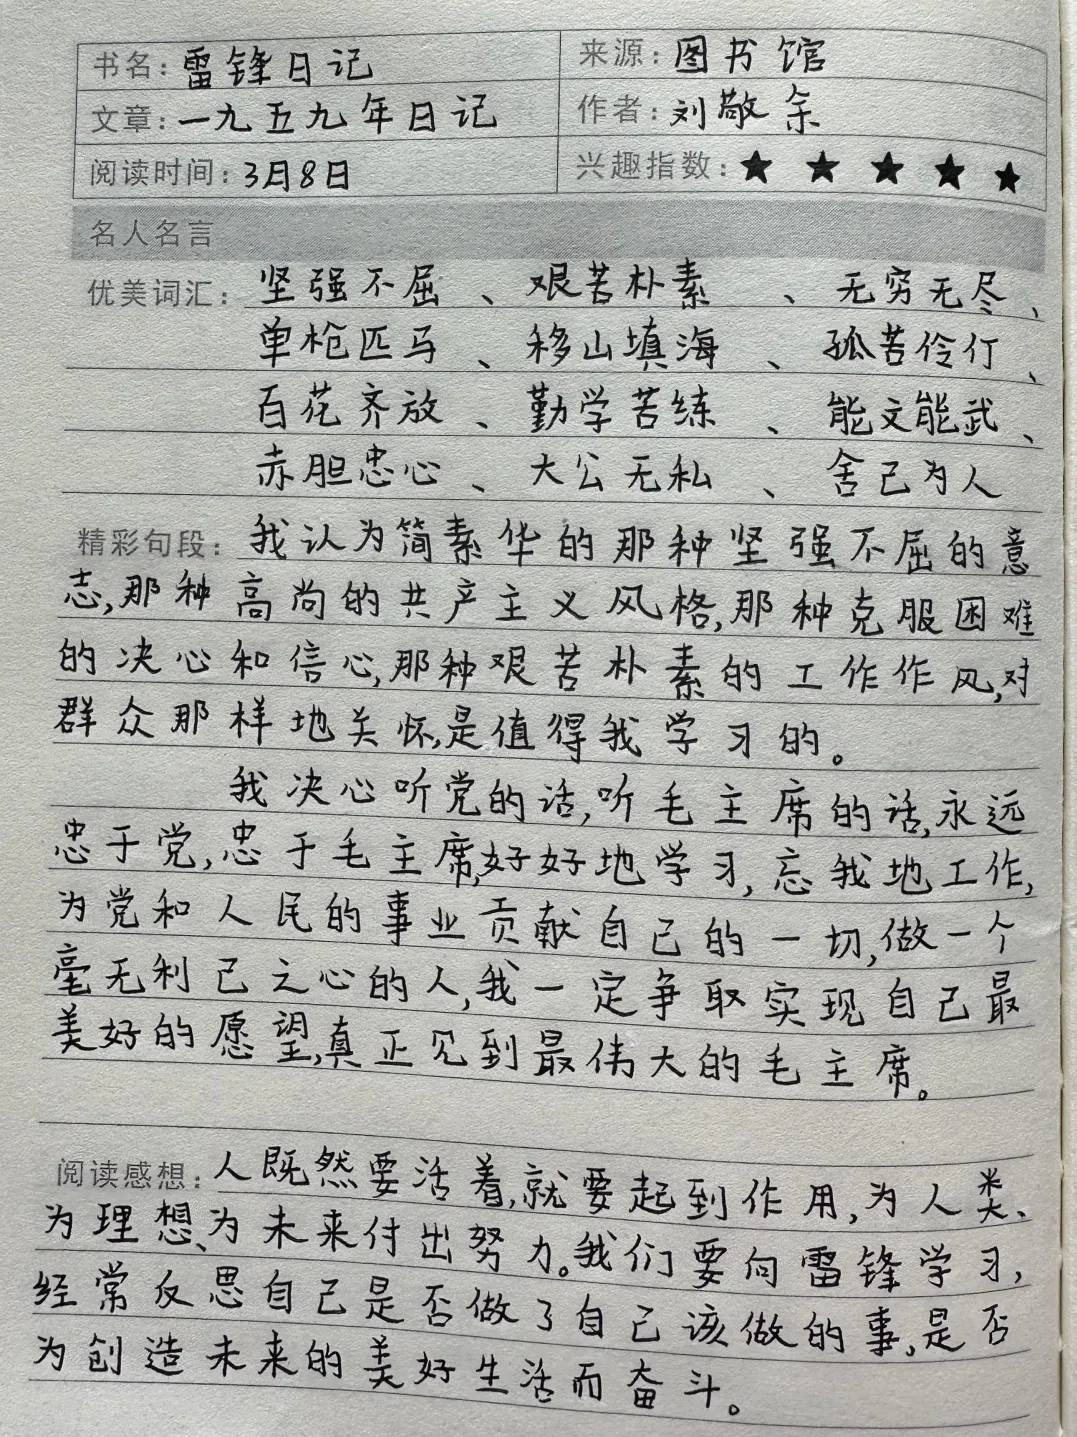 书名:雷锋日记 来源:图书馆
文章:一九五九年日记 作者:刘敬余
阅读时间:3月8日 兴趣指数:★ ★ ★ ★ ★
名人名言
优美词汇:坚强不屈、艰苦朴素、无穷无尽、
单枪匹马、移山填海、孤苦伶仃、
百花齐放、勤学苦练、能文能武、
赤胆忠心、大公无私、舍己为人
精彩句段:我认为简素华的那种坚强不屈的意
志,那种高尚的共产主义风格,那种克服困难
的决心和信心,那种艰苦朴素的工作作风,对
群众那样地关怀,是值得我学习的。
我决心听党的话,听毛主席的话,永远
忠于党,忠于毛主席,好好地学习,忘我地工作,
为党和人民的事业贡献自己的一切,做一个
毫无利己之心的人,我一定争取实现自己最
美好的愿望,真正见到最伟大的毛主席。
阅读感想:人既然要活着,就要起到作用,为人类、
为理想、为未来付出努力。我们要向雷锋学习,
经常反思自己是否做了自己该做的事,是否
为创造未来的美好生活而奋斗。